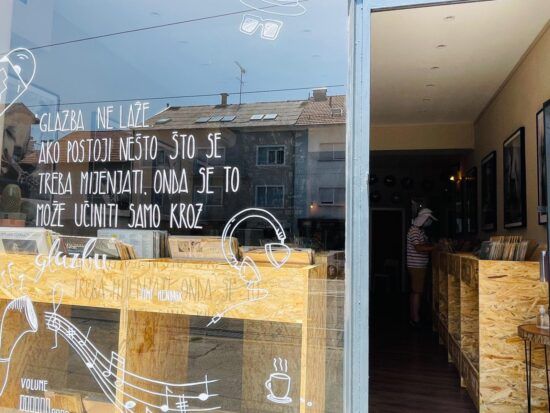 GLAZBA NE LAŽE
AKO POSTOJI NEŠTO ŠTO SE
TREBA MIJENJATI, ONDA SE TO
MOŽE UČINITI SAMO KROZ
glazbu
JIMI HENDRIX
VOLUME